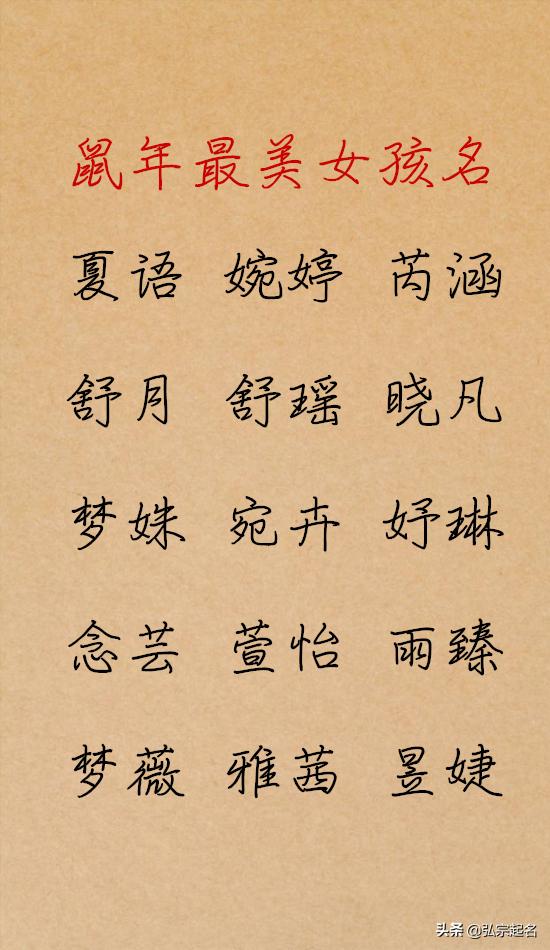 鼠年最美女孩名
夏语 婉婷 芮涵
舒月 舒瑶 晓凡
梦姝 宛卉 妤琳
念芸 萱怡 雨臻
梦薇 雅茜 昱婕
头条 @弘宗起名